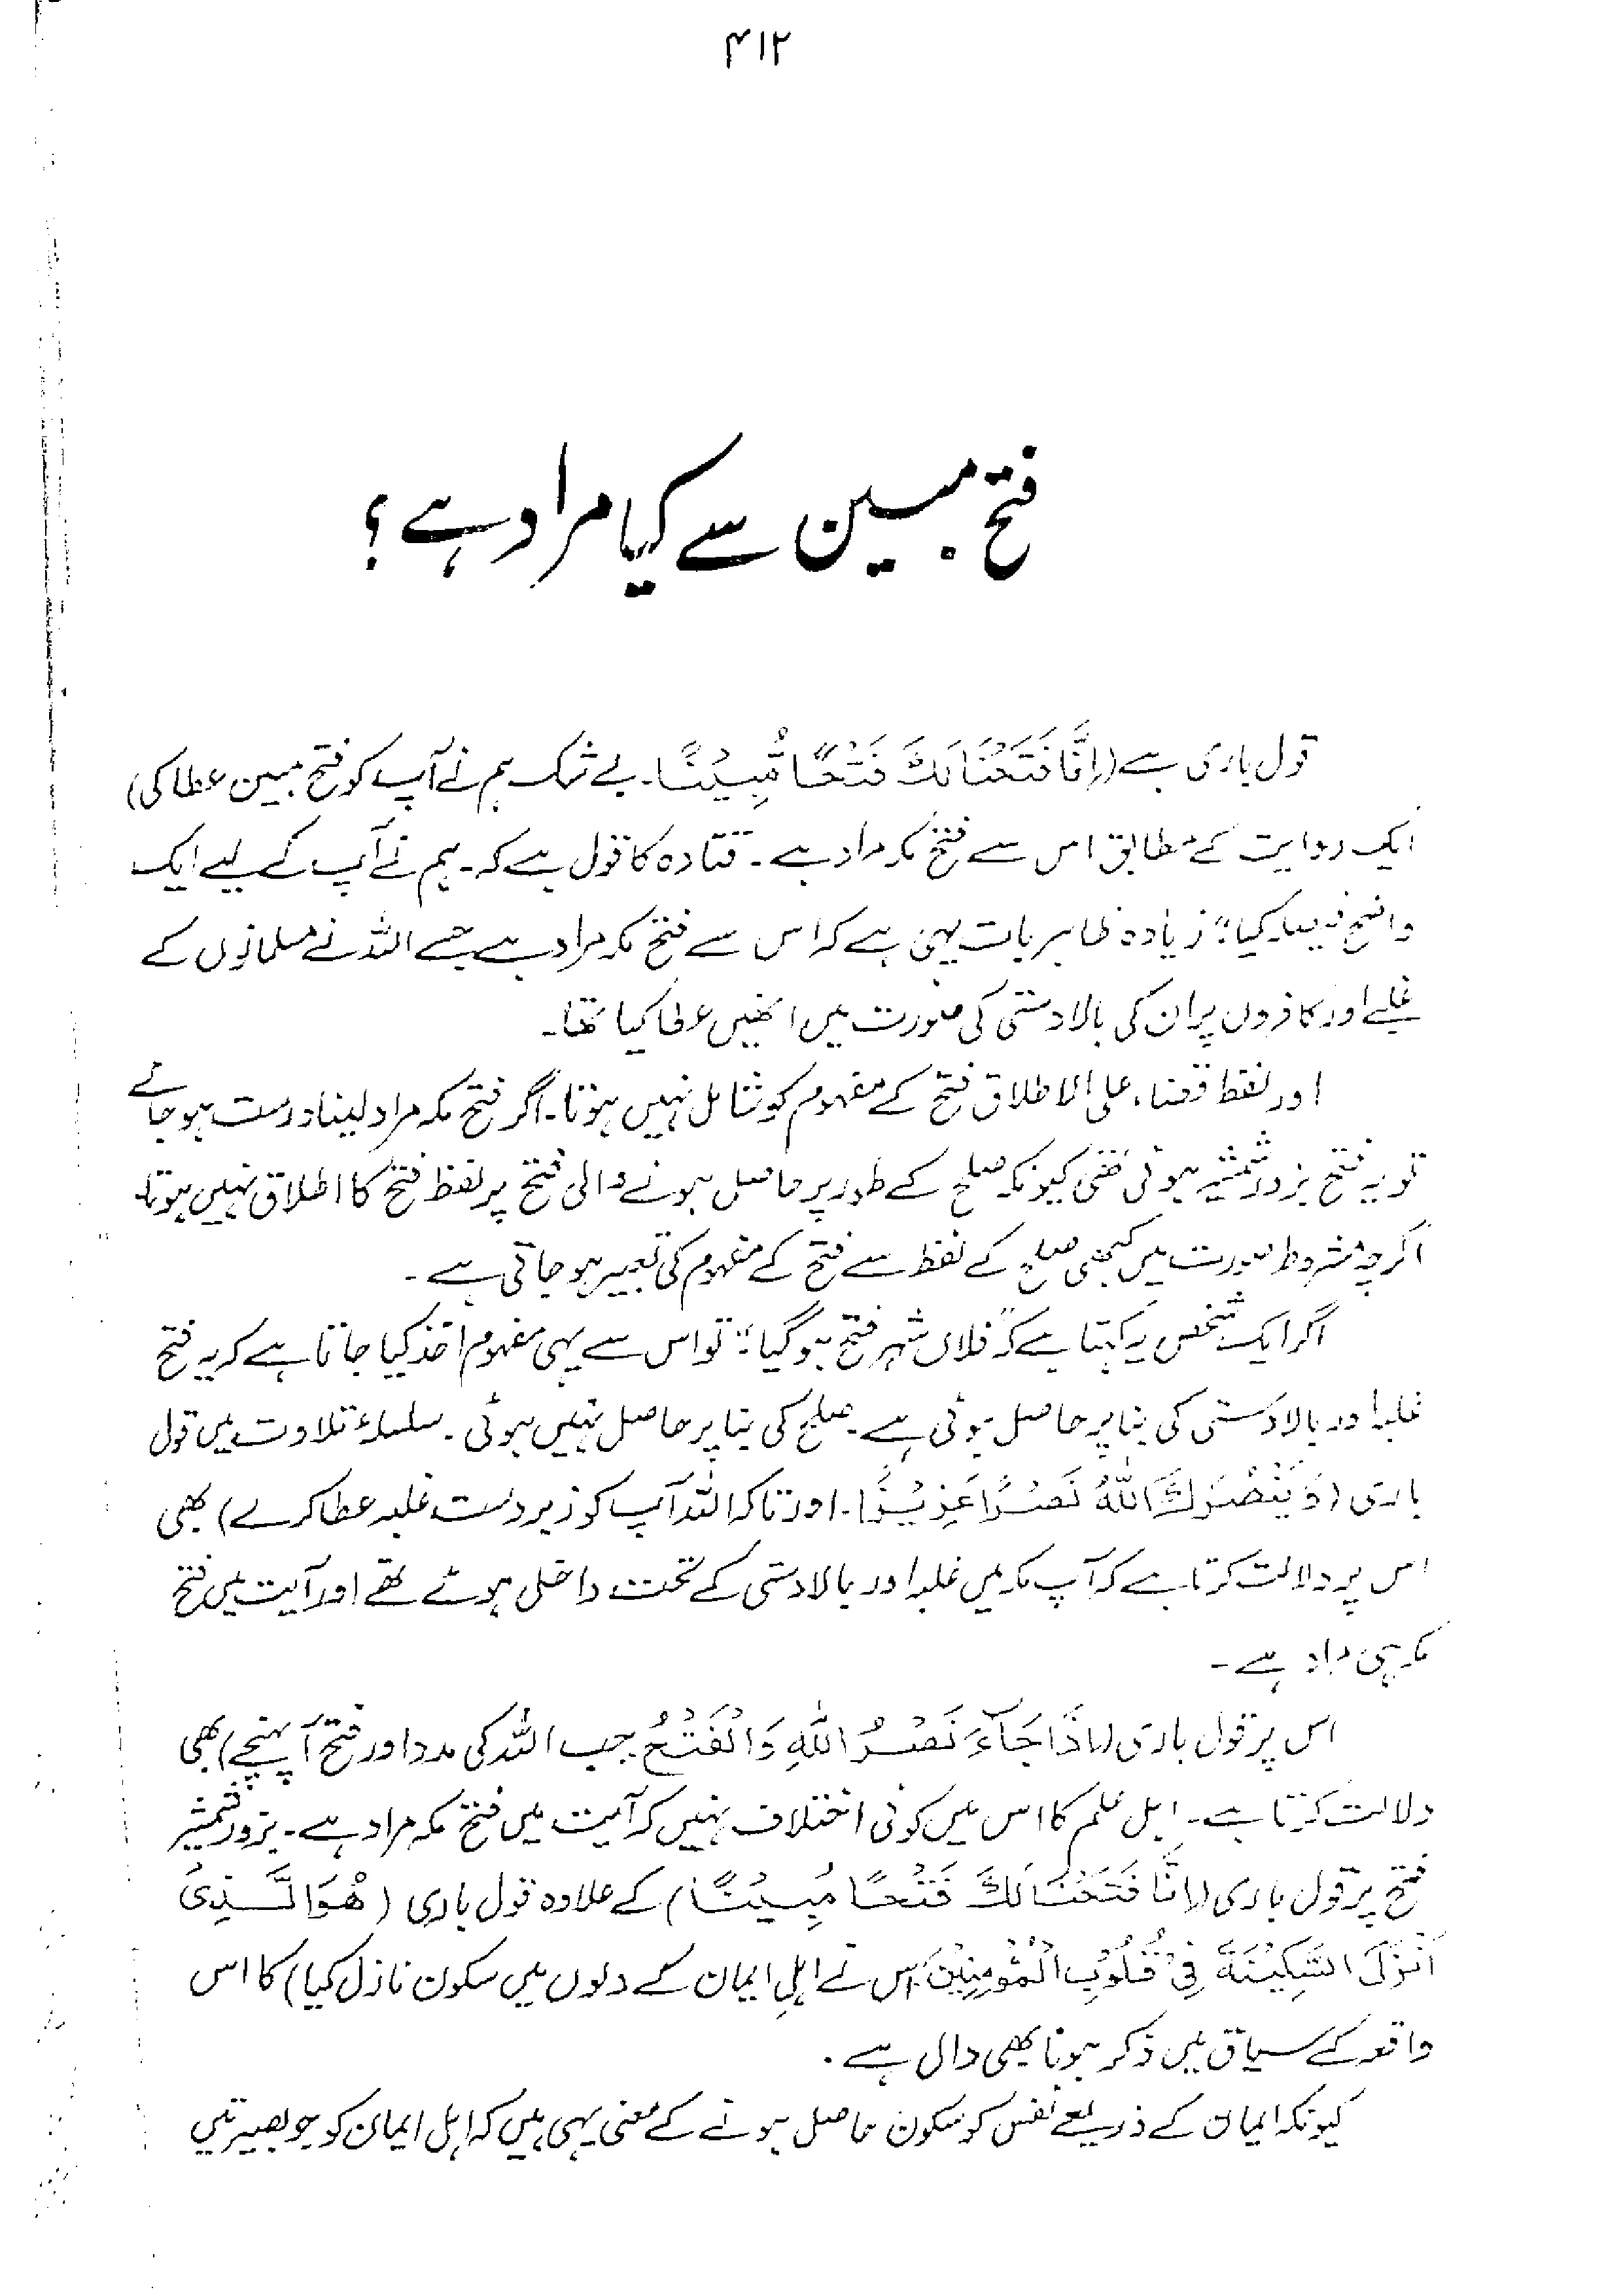 ۴۱۲
فتح مبین سے کیا مراد ہے؟
قول باری ہے (اِنَّا فَتَحْنَا لَكَ فَتْحًا مُّبِيْنًا۔ بے شک ہم نے آپ کو فتح مبین عطا کی)
ایک روایت کے مطابق اس سے فتح مکہ مراد ہے۔ قتادہ کا قول ہے کہ۔ ہم نے آپ کے لیے ایک
واضح فیصلہ کیا" زیادہ ظاہر بات یہی ہے کہ اس سے فتح مکہ مراد ہے جسے اللہ نے مسلمانوں کے
غلبے اور کافروں پر ان کی بالادستی کی صورت میں انھیں عطا کیا تھا۔
اور لفظ قضاء، علی الاطلاق فتح کے مفہوم کو شامل نہیں ہوتا۔ اگر فتح مکہ مراد لینا درست ہو جائے
تو یہ فتح بزور شمشیر ہوئی تھی کیونکہ صلح کے طور پر حاصل ہونے والی فتح پر لفظ فتح کا اطلاق نہیں ہوتا۔
اگرچہ مشروط صورت میں کبھی صلح کے لفظ سے فتح کے مفہوم کی تعبیر ہو جاتی ہے۔
اگر ایک شخص یہ کہتا ہے کہ "فلاں شہر فتح ہو گیا" تو اس سے یہی مفہوم اخذ کیا جاتا ہے کہ یہ فتح
غلبہ اور بالادستی کی بنا پر حاصل ہوئی ہے۔ صلح کی بنا پر حاصل نہیں ہوئی۔ سلسلۂ تلاوت میں قول
باری (وَيَنْصُرَكَ اللّٰهُ نَصْرًا عَزِيْزًا۔ اور تاکہ اللہ آپ کو زبردست غلبہ عطا کرے) بھی
اس پر دلالت کرتا ہے کہ آپ مکہ میں غلبہ اور بالادستی کے تحت داخل ہوئے تھے اور آیت میں فتح
مکہ ہی مراد ہے۔
اس پر قول باری (اِذَا جَآءَ نَصْرُ اللّٰهِ وَالْفَتْحُ جب اللہ کی مدد اور فتح آپہنچے) بھی
دلالت کرتا ہے۔ اہل علم کا اس میں کوئی اختلاف نہیں کہ آیت میں فتح مکہ مراد ہے۔ بزور شمشیر
فتح پر قول باری (اِنَّا فَتَحْنَا لَكَ فَتْحًا مُبِيْنًا) کے علاوہ قول باری (هُوَ الَّذِيْ
اَنْزَلَ السَّكِيْنَةَ فِيْ قُلُوْبِ الْمُؤْمِنِيْنَ۔ اس نے اہلِ ایمان کے دلوں میں سکون نازل کیا) کا اس
واقعہ کے سیاق میں ذکر ہونا بھی دال ہے۔
کیونکہ ایمان کے ذریعے نفس کو سکون حاصل ہونے کے معنی یہی ہیں کہ اہل ایمان کو جو بصیرتیں